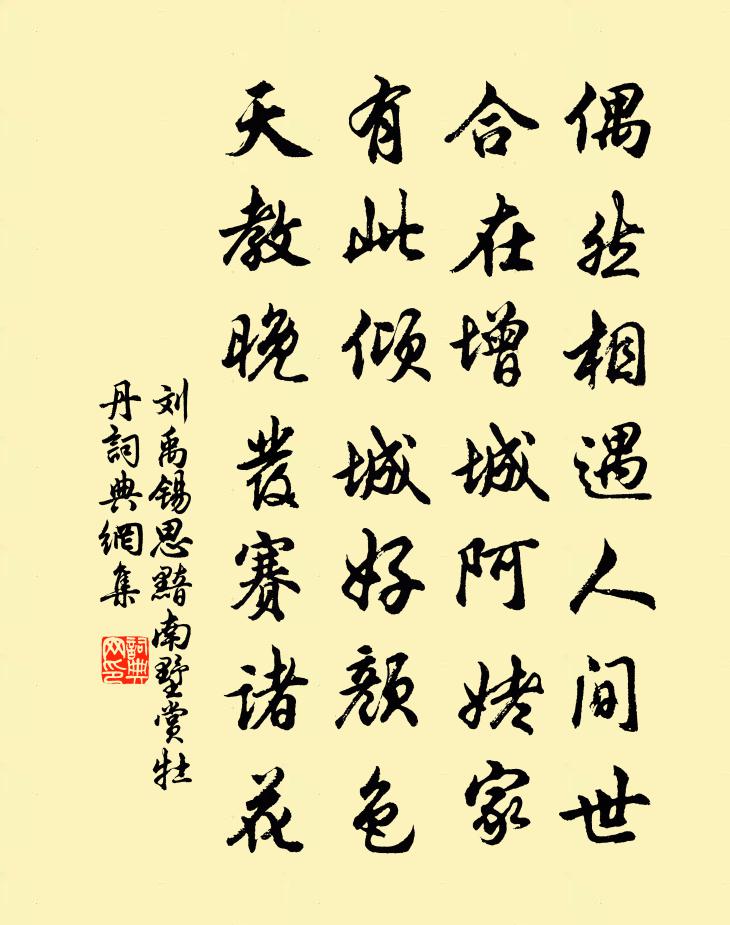 偶然相遇人间世
合在增城阿姥家
有此倾城好颜色
天教晚发赛诸花
刘禹锡思黯南墅赏牡
丹詞典網集
詞典
网印